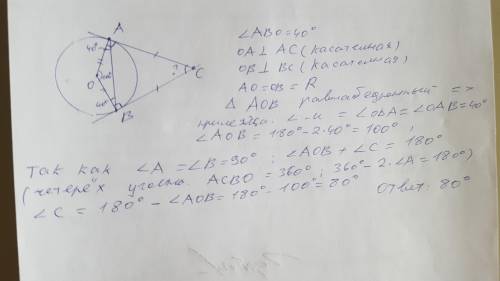 A
40°
O
100°
40°
B
?
C
∠ABO=40°
OA⊥AC (касательная)
OB⊥BC (касательная)
AO=OB=R
△ AOB равнобедренный =>
прилежащ. ∠-и = ∠OBA=∠OAB=40°
∠AOB = 180°-2·40°=100° ;
Так как ∠A=∠B=90° ; ∠AOB+∠C = 180°
(четерёх угольн. ACBO = 360° ; 360°-2·∠A=180°)
∠C = 180° - ∠AOB=180°-100°=80° Ответ: 80°